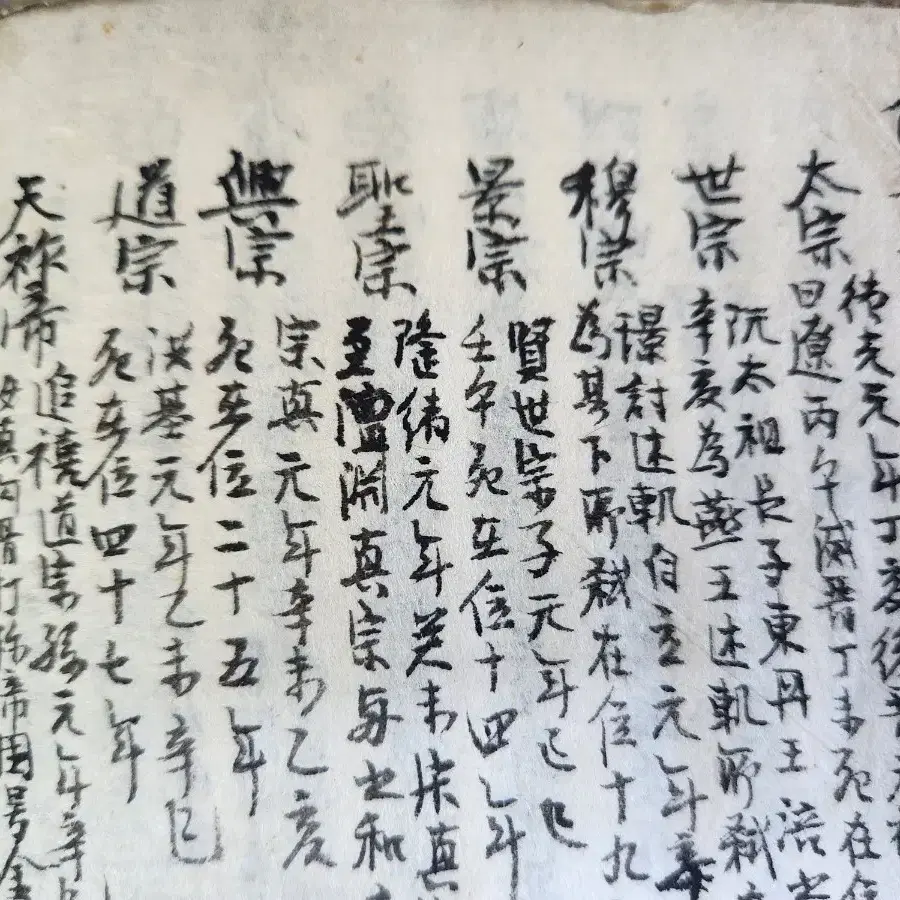 太宗
德光元年丁亥後晋
曰遼丙午滅晋丁未死在位
世宗
阮太祖長子東丹王
辛亥為燕王述軋所弑
穆宗
璟討述軋自立元年辛
為其下所弑在位十九
景宗
賢世宗子元年己巳
壬午死在位十四年
聖宗
隆緒元年癸未 真
至澶淵真宗与之和
興宗
宗真元年辛未乙亥
死在位二十五年
道宗
洪基元年乙未辛巳
死在位四十七年
天祚帝
追禧道宗孫元年辛
女真阿骨打称帝国号金